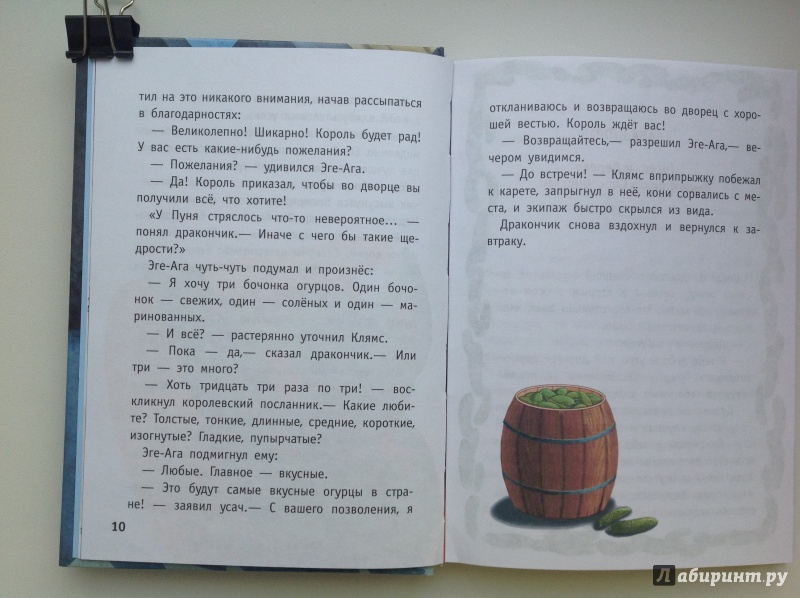 тил на это никакого внимания, начав рассыпаться
в благодарностях:
— Великолепно! Шикарно! Король будет рад!
У вас есть какие-нибудь пожелания?
— Пожелания? — удивился Эге-Ага.
— Да! Король приказал, чтобы во дворце вы
получили всё, что хотите!
«У Пуня стряслось что-то невероятное... —
понял дракончик.— Иначе с чего бы такие ще-
дрости?»
Эге-Ага чуть-чуть подумал и произнёс:
— Я хочу три бочонка огурцов. Один бочо-
нок — свежих, один — солёных и один — ма-
ринованных.
— И всё? — растерянно уточнил Клямс.
— Пока — да,— сказал дракончик.— Или
три — это много?
— Хоть тридцать три раза по три! — вос-
кликнул королевский посланник.— Какие люби-
те? Толстые, тонкие, длинные, средние, короткие,
изогнутые? Гладкие, пупырчатые?
Эге-Ага подмигнул ему:
— Любые. Главное — вкусные.
— Это будут самые вкусные огурцы в стра-
не! — заявил усач.— С вашего позволения, я
10
откланиваюсь и возвращаюсь во дворец с хоро-
шей вестью. Король ждёт вас!
— Возвращайтесь,— разрешил Эге-Ага,— ве-
чером увидимся.
— До встречи! — Клямс вприпрыжку побежал
к карете, запрыгнул в неё, кони сорвались с ме-
ста, и экипаж быстро скрылся из вида.
Дракончик снова вздохнул и вернулся к за-
втраку.
Лабиринт.ру